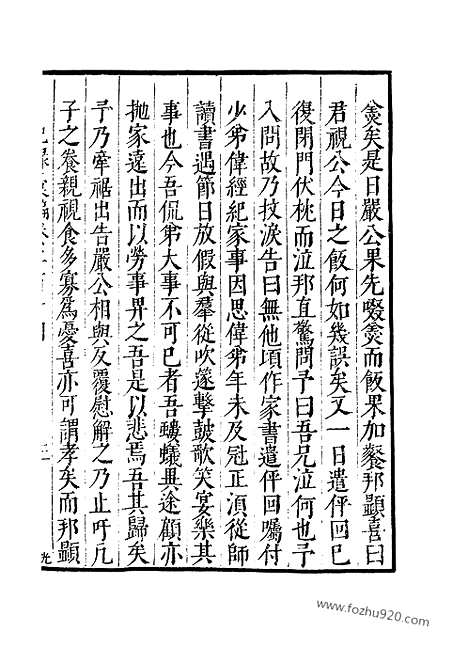 羮矣是日嚴公果先啜羮而飯果加餐邦顯喜曰
君視公今日之飯何如幾誤矣又一日遣伻回已
復閉門伏桃而泣邦直驚問予曰吾兄泣何也予
入問故乃抆淚告曰無他頃作家書遣伻回囑付
少弟偉經紀家事因思偉弟年未及冠正湏從師
讀書遇節日放假與羣從吹篴擊鼓歌笑宴樂其
事也今吾侃弟大事不可已者吾螻蟻異途顧亦
拋家遠出而以勞事畀之吾是以悲焉吾其歸矣
予乃牽裾出告嚴公相與反覆慰解之乃止吁凡
子之養親視食多寡爲憂喜亦可謂孝矣而邦顯
紀錄彙編卷
三
光
www.fozhu920.com